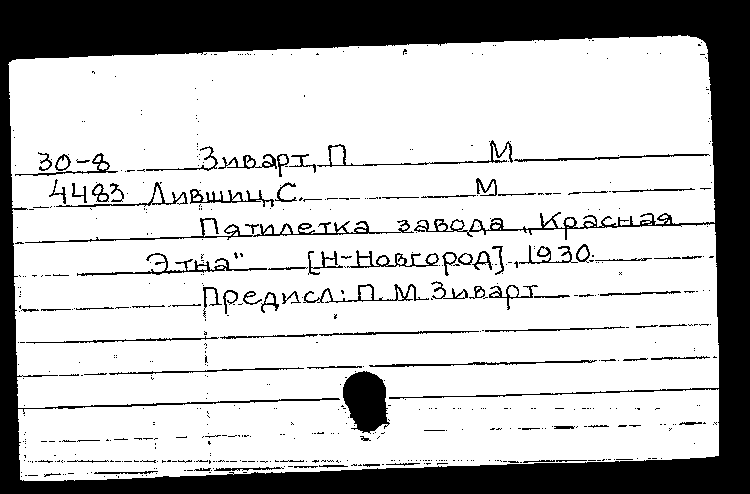 30-8 Зиварт, П. М
4483 Лившиц, С. М
Пятилетка завода „Красная
Этна" [Н-Новгород], 1930.
Предисл: П. М Зиварт